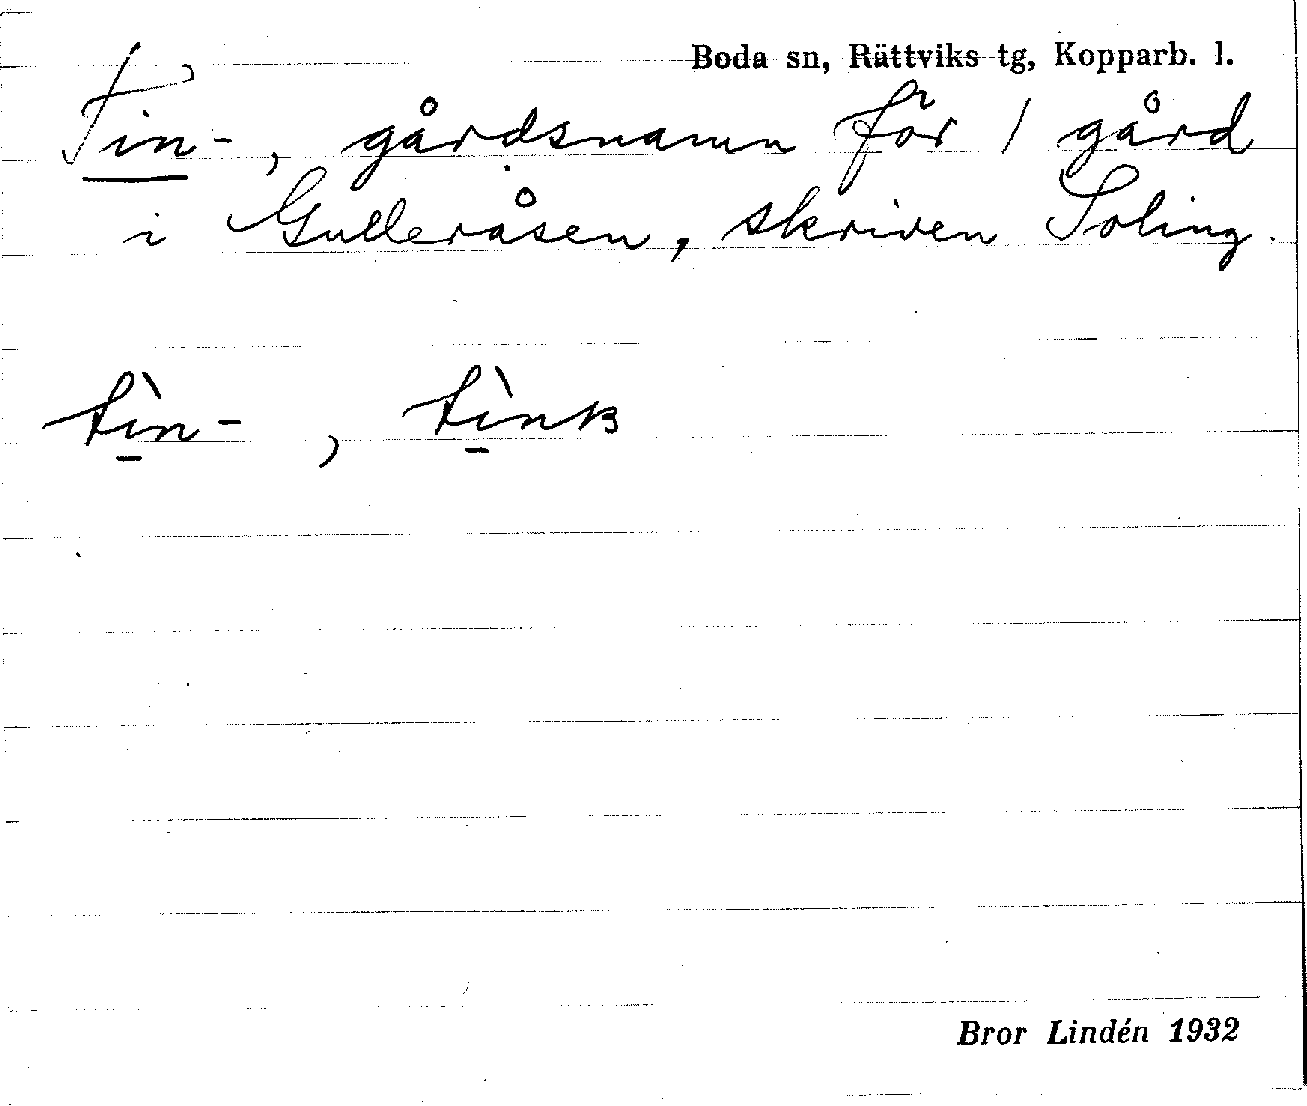 Boda sn, Rättviks tg, Kopparb. l.
Tin-, gårdsnamn för 1 gård
i Gulleråsen, skriven Soling.
tı̱̀n-, tı̱̀nk
Bror Lindén 1932